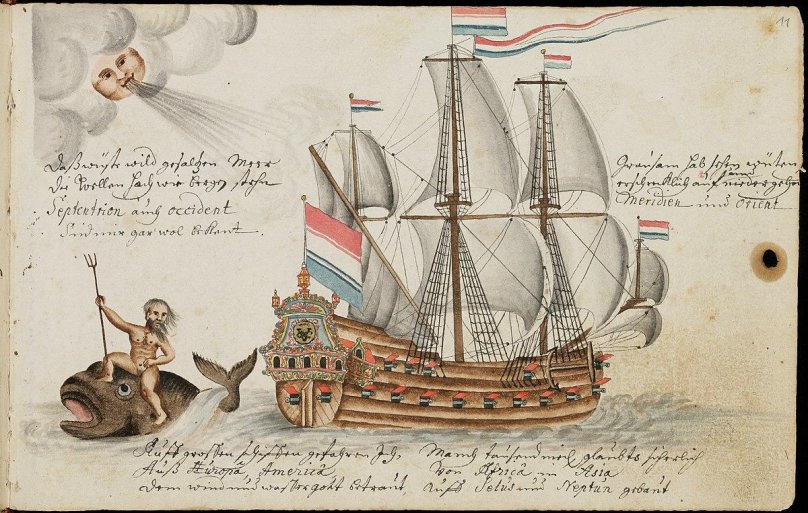 11
Daß wüste wild gesalzen Meer
Die Wellen hoch wie bergen stehn
Septentrion auch occident
Sind mir gar wol bekent.
Grausam hab sehen wüten
erschrecklich auf und nieder gehen
Meridien und Orient
Auff grossen schiffen gefahren ich
Auß Europa America
dem wind und wasser gott vertraut
Manch tausend meil glaubts sicherlich
Von Africa in Asia
Auff und Neptun gebaut